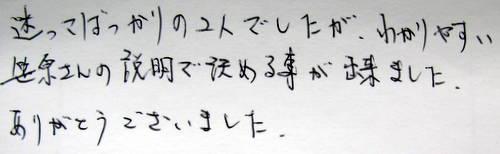 迷ってばっかりの2人でしたが、わかりやすい
笹原さんの説明で決める事が出来ました.
ありがとうございました.